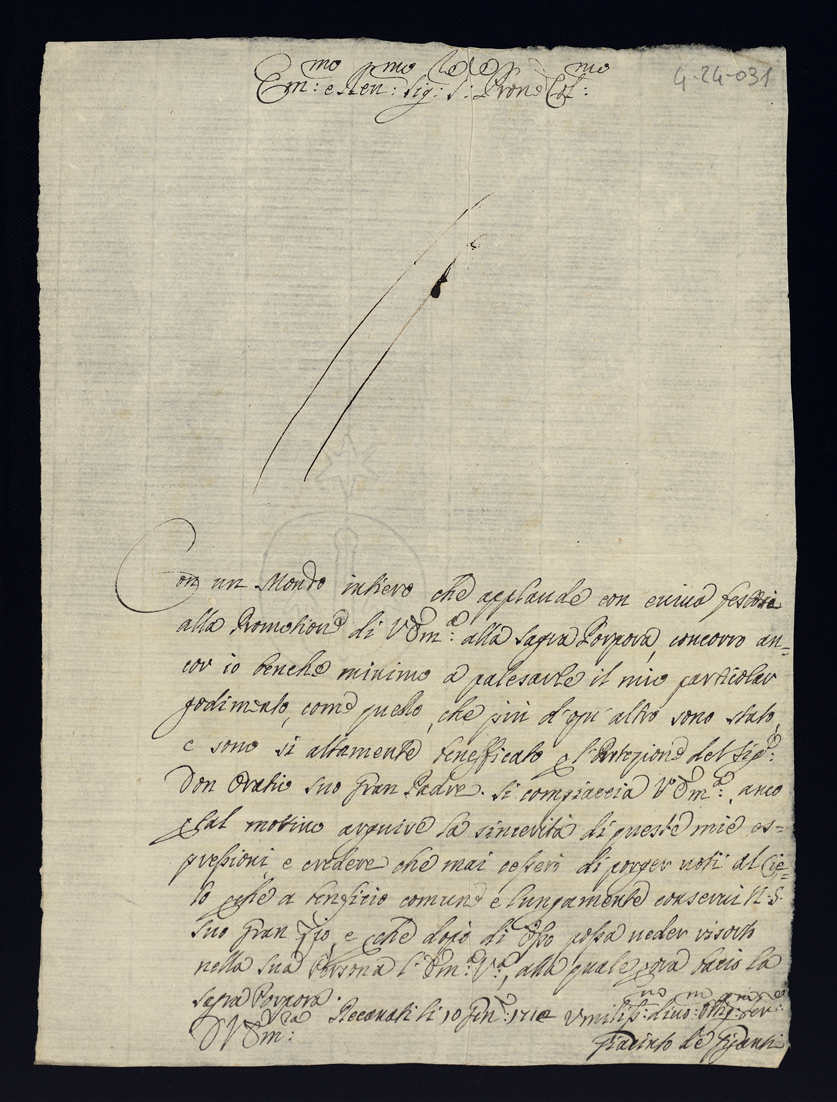 4-24-031
Em:mo e Rev:mo Sig: S: Prone Col:mo
Con un Mondo intiero che applaude con eviva festivi
alla Promotione di V Em:a alla Sagra Porpora, concorro an=
cor io benche minimo a palesarle il mio particolar
godimento, come quello, che più d'ogn'altro sono stato,
e sono si altamente beneficato p l'Protezione del Sig:e
Don Oratio suo Gran Padre. Si compiaccia V Em:a, anco
p tal motivo arguire la sincerità di queste mie es=
pressioni, e credere che mai cesserò di porger voti al Cie=
lo p che a beneficio comune e lungamente conservi N.S.
suo Gran Zio, e p che dopo di Esso possa veder risorta
nella sua Persona l'Em:a V:a, alla quale p ora bacio la
sagra Porpora.
D V Em:za Recanati li 10 Gen:o 1712 Umiliss:mo divo: obblig: Ser:e
Giacinto de Giganti